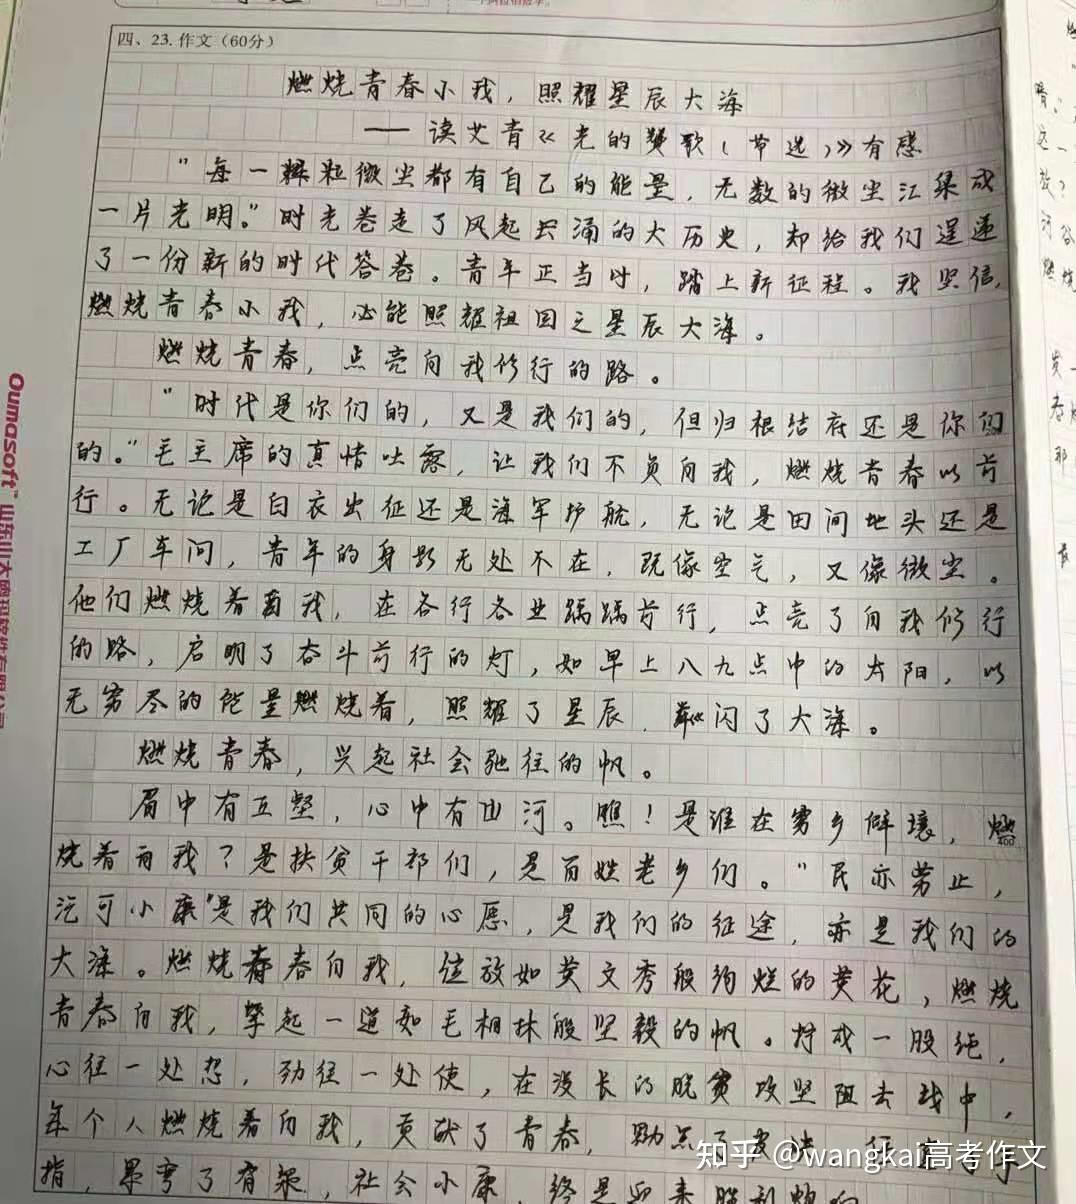 四、23.作文（60分）
燃烧青春小我，照耀星辰大海
——读艾青《光的赞歌（节选）》有感
"每一粒微尘都有自己的能量，无数的微尘汇集成
一片光明。"时光卷走了风起云涌的大历史，却给我们递
了一份新的时代答卷。青年正当时，踏上新征程。我坚信，
燃烧青春小我，必能照耀祖国之星辰大海。
燃烧青春，点亮自我修行的路。
"时代是你们的，又是我们的，但归根结底还是你们
的。"毛主席的真情吐露，让我们不负自我，燃烧青春以前
行。无论是白衣出征还是海军护航，无论是田间地头还是
工厂车间，青年的身影无处不在，既像空气，又像微尘。
他们燃烧着自我，在各行各业踽踽前行，点亮了自我修行
的路，启明了奋斗前行的灯，如早上八九点中的太阳，以
无穷尽的能量燃烧着，照耀了星辰，闪了大海。
燃烧青春，兴起社会驰往的帆。
眉中有丘壑，心中有山河。瞧！是谁在穷乡僻壤，燃
烧着自我？是扶贫干部们，是百姓老乡们。"民亦劳止，
汔可小康"是我们共同的心愿，是我们的征途，亦是我们的
大海。燃烧青春自我，绽放如黄文秀般绚烂的黄花，燃烧
青春自我，擎起一道如毛相林般坚毅的帆。拧成一股绳，
心往一处想，劲往一处使，在漫长的脱贫攻坚阻击战中，
每个人燃烧着自我，贡献了青春，助点了
指，累弯了脊梁，社会小康，终是迎来胜利
Oumasoft
知乎 @wangkai高考作文